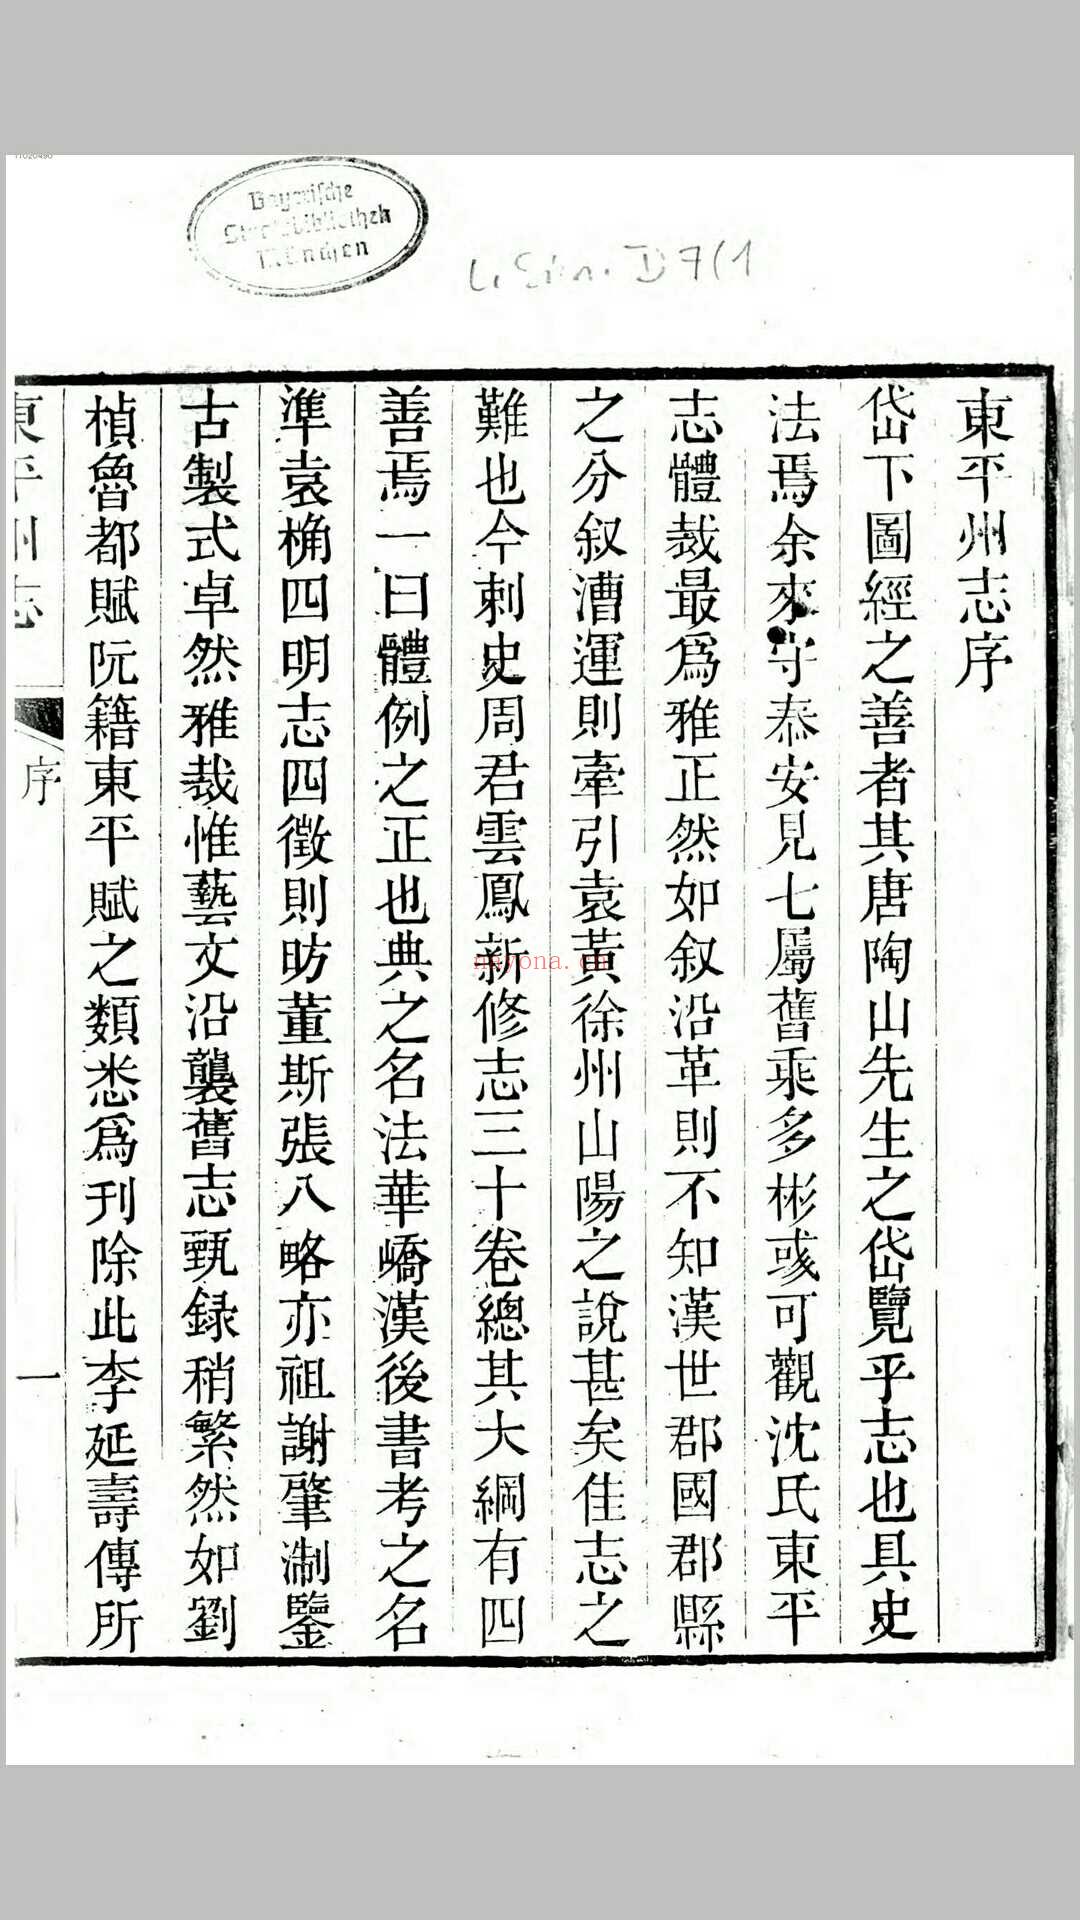 11020490
Bayerische
Staatsbibliothek
München
L. Sin. D 7(1
東平州志序
岱下圖經之善者其唐陶山先生之岱覽乎志也具史
法焉余來守泰安見七屬舊乘多彬彧可觀沈氏東平
志體裁最爲雅正然如叙沿革則不知漢世郡國郡縣
之分叙漕運則牽引袁黃徐州山陽之說甚矣佳志之
難也今刺史周君雲鳳新修志三十卷總其大綱有四
善焉一曰體例之正也典之名法華嶠漢後書考之名
準袁桷四明志四徵則昉董斯張八略亦祖謝肇淛鑒
古製式卓然雅裁惟藝文沿襲舊志甄録稍繁然如劉
楨魯都賦阮籍東平賦之類悉爲刊除此李延壽傳所
東平州志
序
一
nayona.cn